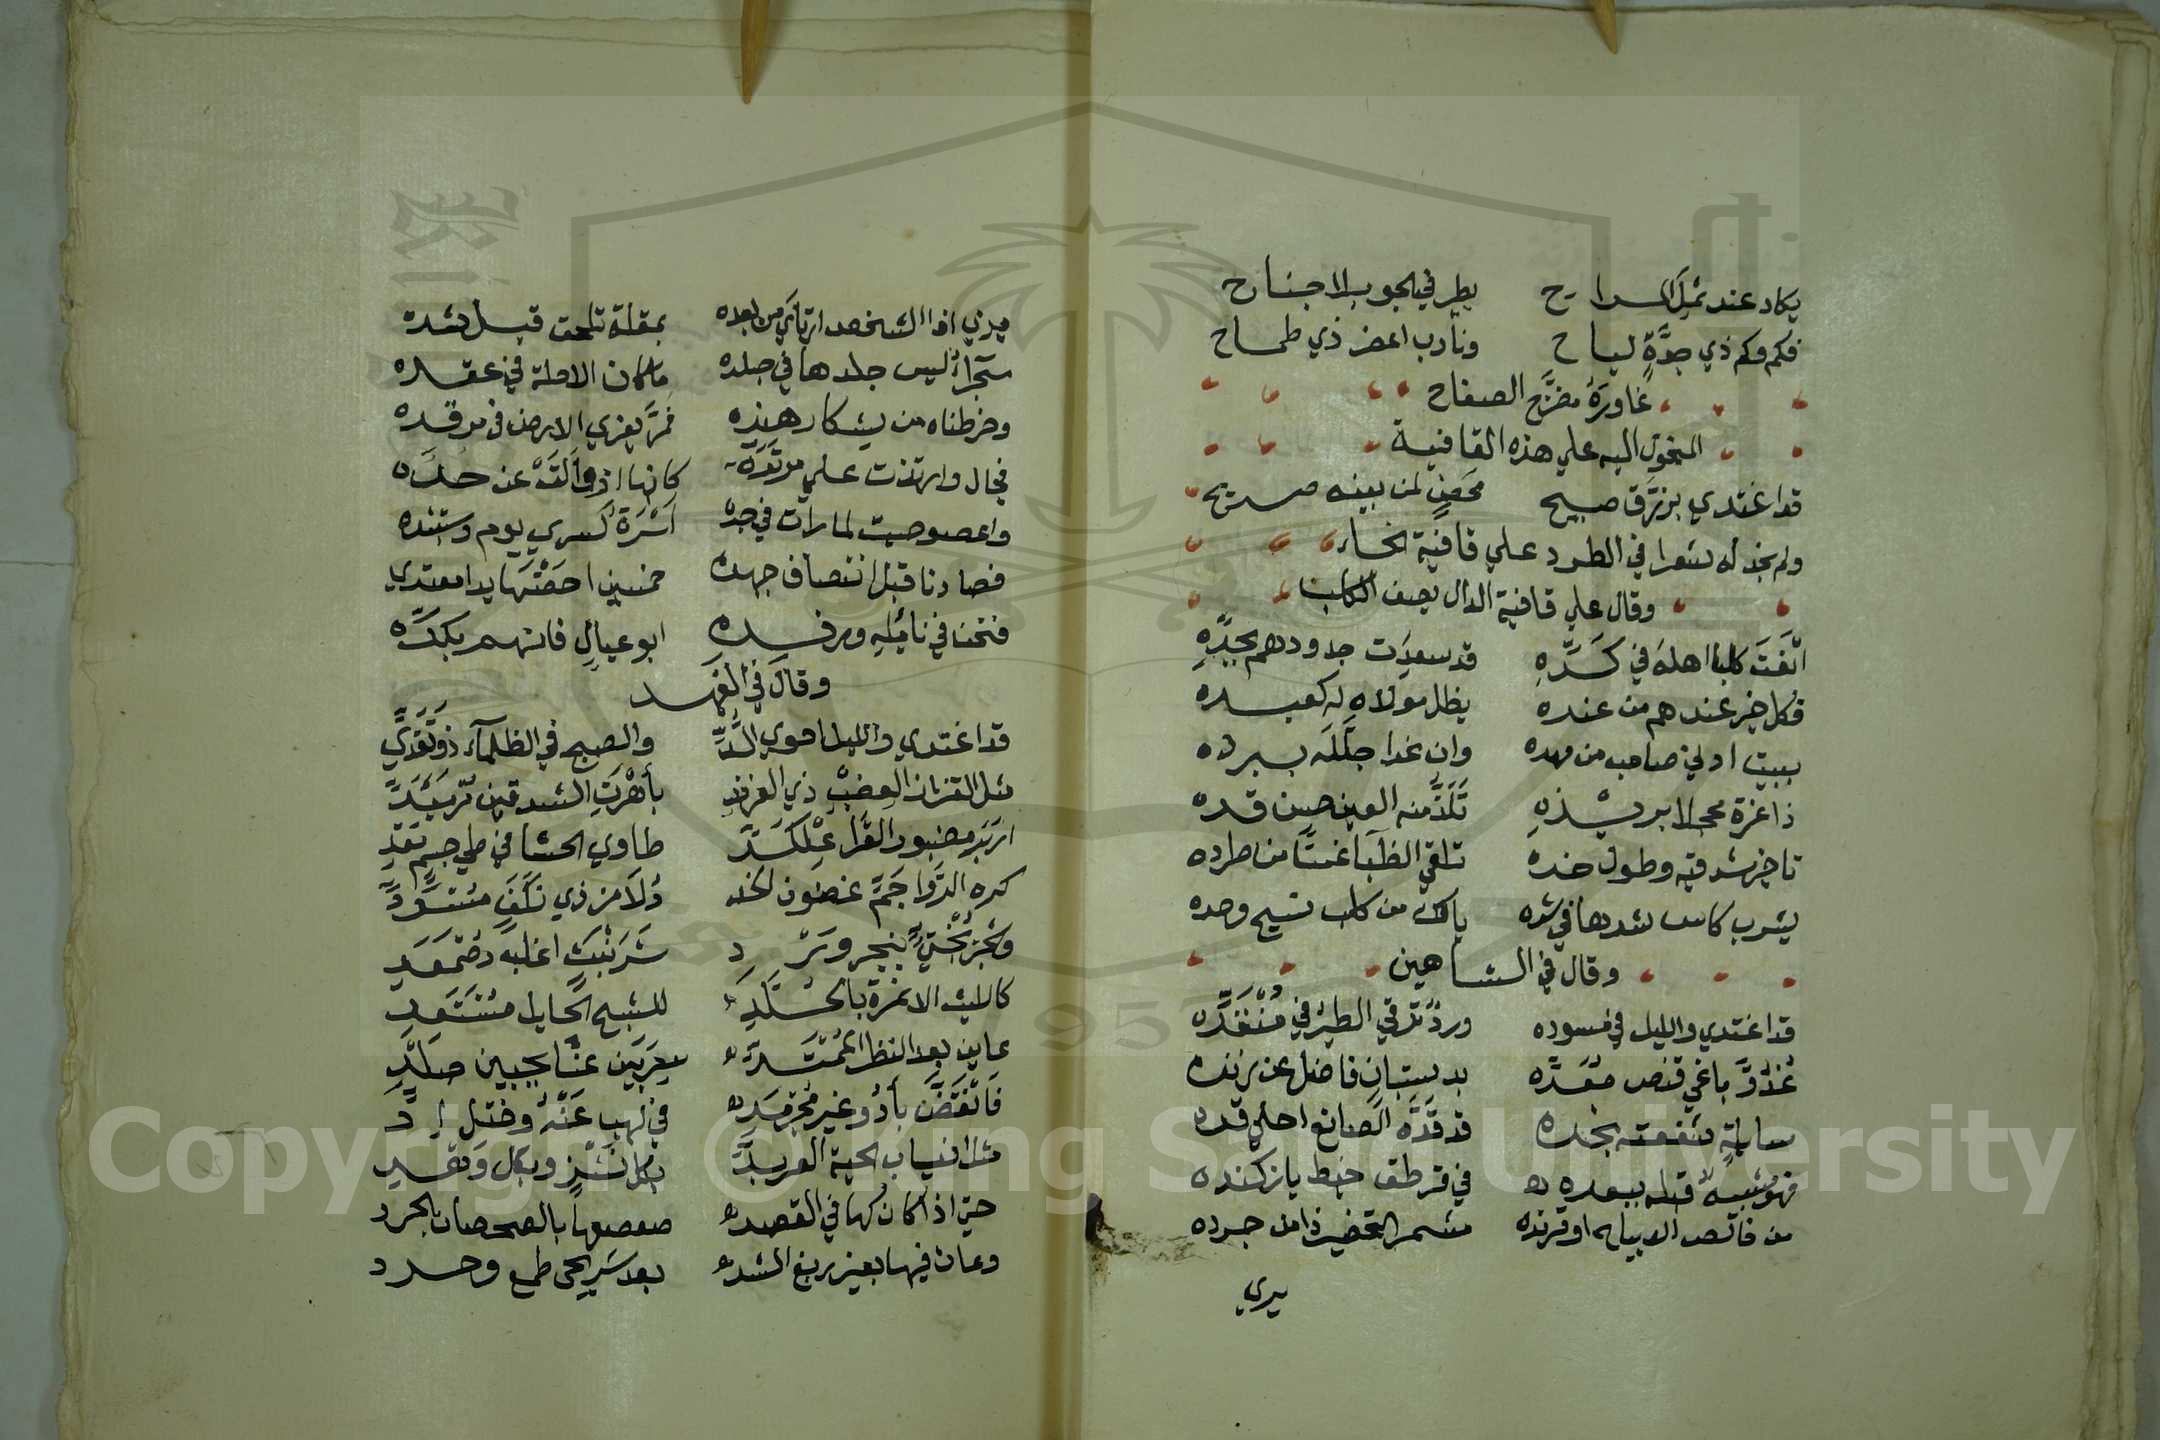 يكاد عند ثمل المراح يطير في الجو بلا جناح
فكم وكم ذي جدَّة لياح ونازب اعفر ذي طماح
غاورَهُ مضرَّج الصفاح
المنحول اليه علي هذه القافية
قد اغتدي بزُرَّق صبيح محضٍ لمن ينسبه صريح
ولم نجد له شعرا في الطرد علي قافية الخاء
وقال علي قافية الدال يصف الكلب
اتْعَبَ كلبا اهلهُ في كَدِّهِ قد سعِدَت جدودهم بجدِّهِ
فكل خير عندهم من عنده يظل مولاه له كعبده
يبيت ادني صاحب من مهده وان غدا جلَّلَه ببرده
ذا غرة محجلا بزنده تَلَذُّ منه العين حسن قده
تاخير شدقيه وطول خده تلقي الظبا عنتًا من طرده
يشرب كاس شدها في شده يالك من كلب نسيج وحده
وقال في الشاهين
قد اغتدي والليل في مسوده ورد ترقي الطير في مُنْقَدِّه
غُدُوَّ باغي قنص مُعَدِّه بدستبان فاضل عن زنده
سابلةٍ شفعته بخده قد قَدَّه الصانع احلي قده
فهو شبيه قبله ببعده في قرطق خيط يازكنده
من فاتص الابياه او فرنده مشمر القميص ذا من جرده
يري
يري اذا الشخص ارتأي من بعده بمقلة تلحق قبل شده
سَجرَاءُ ليس جلدها في جلده ما كان الا حلة في عقده
وخرطناه من يشكار هنده فمرَّ يفري الارض في مرقده
فجال وارتدت علي مرتدِّه كانها اذ والَتَتْ عن حده
واعصوصبت لما رات في جده اُسْرَة كسري يوم دستبنده
فصادنا قبل انتصاف جهده خمسين احصَتها يدا معتده
فنحن في نائله ورفده ابو عيال قاتهم بكدِّه
وقال في الفهد
قد اغتدي والليل احوي السُّدِّ والصبح في الظلماء ذو تَقَدِّي
مثل اهتزاز العضْبِ ذي الفرند بأهْرَتِ الشدقين مُرْمَئِدِّ
ازبَرَ مضبور القَرا عِلْكَدِّ طاوي الحشا في طي جسم مَعْدِ
كره الرُّوا جَمِّ غضون الخد دُلامز ذي نَكَفٍ مُسْوَدِّ
وشجر لَحْيٍ بنحر وَرْد شَرَنْبَثٍ اغلبَ مُصْمَعَدِّ
كالليث الا نمرة بالجلد للشبح الحايل مُسْتَعِدِّ
عاين بعد النظر الممتد سِربَين عَنَّا بجبين صلْدِ
فَانقضَّ يأدُو غير مُجْرَهَدِّ في لهب عَنْهُ وختل اِدِّ
مثل انسياب الحية العربدِّ بكل نَشْزٍ وبكل وَهْدِ
حتي اذا كان كها في القصد صعصعها بالصحصحان الجرد
وعاث فيها بعزيز الشد بعد شريحي طمع وحرد